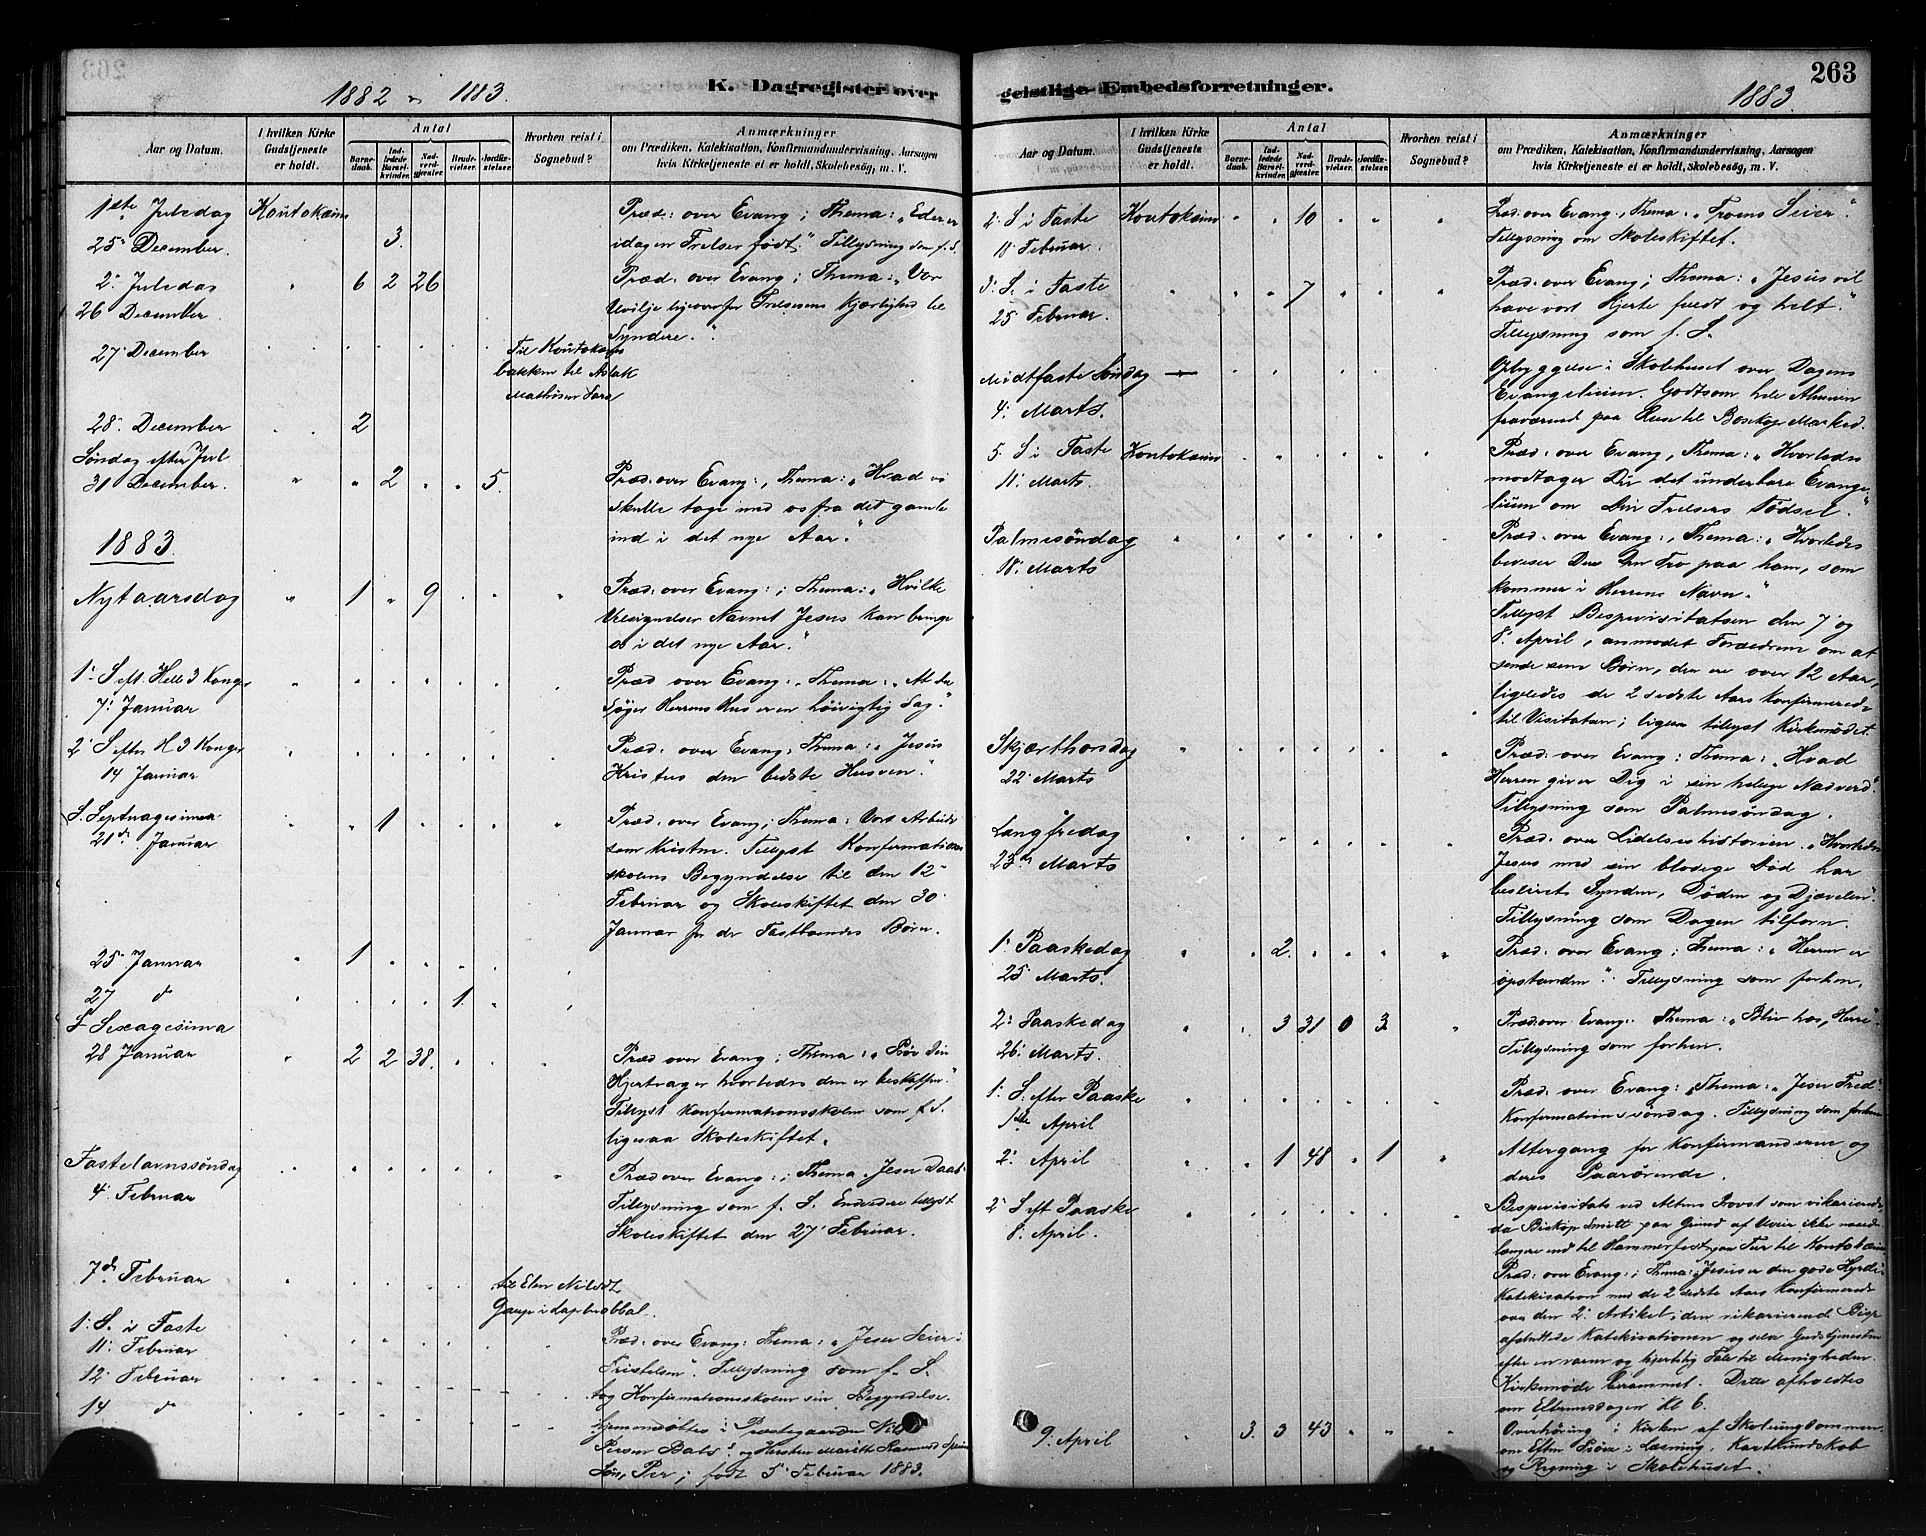 263
1882 & 1883.
K. Dagregister over
geistlige Embedsforretninger.
1883.
Aar og Datum.
I hvilken Kirke Gudstjeneste er holdt.
Antal
Barnedaab.
Indledede Barselkvinder.
Nadverdgjester.
Brudevielser.
Jordfæstelser.
Hvorhen reist i Sognebud?
Anmærkninger
om Prædiken, Katekisation, Konfirmandundervisning, Aarsagen
hvis Kirketjeneste ei er holdt, Skolebesøg, m. V.
1ste Juledag Koutokeino Præd: over Evang; Thema: "Eder er
25 December 3. idagen Frelser født." Tillysning som f. S.
2: Juledag " 6 2 26 Præd: over Evang; Thema: "Vor
26 December Uvilje ligeoverfor Frelserens Kjærlighed til
Syndere."
27 December Til Koutokeino
bakken til Aslak
Mathisen Sara
28. December 2
Søndag efter Jul
31 December. " " 2 " " 5. Præd: over Evang:, Thema: "Hvad vi
skulle tage med os fra det gamle
ind i det nye Aar."
1883.
Nytaarsdag " 1 " 9 Præd: over Evang:; Thema: "Hvilke
Velsignelser Navnet Jesus kan bringe
os i det nye Aar."
1: S eft. Hell 3 Konger Præd over Evang:, Thema: "At
7: Januar søger Herrens Hus er en høivigtig Sag."
2: S efter H 3 Konger Præd: over Evang: Thema: "Jesus
14 Januar Kristus den bedste Husven."
S. Septuagesima " " 1 Præd: over Evang; Thema: Vort Arbeide
21de Januar som Kristne. Tillyst Konfirmations
skolens Begyndelse til den 12
Februar og Skoleskiftet den 30
Januar for de Fastboendes Børn.
25 Januar " 1
27 d " 1.
S Sexagesima
28 Januar " 2 2 38. Præd over Evang; Thema: "Prøv Din
Hjertager hvorledes den er beskaffen."
Tillyst Konfirmationsskolen som f. S.
ligesaa Skoleskiftet.
Fastelavnssøndag Præd over Evang:; Thema Jesu Daab
4. Februar Tillysning som f. S. Endvidere tillyst
Skoleskiftet den 27 Februar.
7de Februar til Elen Nilsdt.
Gaup i
1: S. i Faste
11: Februar Præd: over Evang: Thema: "Jesu Seier i
12 Februar Fristelsen". Tillysning som f. S.
tog Konfirmationsskolen sin Begyndelse.
14 d hjemmedøbtes i Præstegaarden Nils
Persen Bals og Hustru Maritt
Søn, Per; født 5 Februar 1883.
Aar og Datum.
I hvilken Kirke Gudstjeneste er holdt.
Antal
Barnedaab.
Indledede Barselkvinder.
Nadverdgjester.
Brudevielser.
Jordfæstelser.
Hvorhen reist i Sognebud?
Anmærkninger
om Prædiken, Katekisation, Konfirmandundervisning, Aarsagen
hvis Kirketjeneste ei er holdt, Skolebesøg, m. V.
2: S i Faste Koutokeino " " 10 Præd: over Evang., Thema: "Troens Seier."
18 Februar Tillysning om Skoleskiftet.
3: S. i Faste " " 7 Præd: over Evang; Thema: "Jesus vil
25 Februar. have vort Hjerte fuldt og helt."
Tillysning som f. S.
Midtfaste Søndag — Opbyggelse i Skolehuset over Dagens
4: Marts. Evangelium. Godtsom hele Almuen
fraværend paa Reise til Bosekop Marked.
5. S i Faste Koutokeino Præd: over Evang, Thema: "Hvorledes
11. Marts. modtager Du det underbare Evange-
lium om Din Frelsers Fødsel."
Palmesøndag Præd: over Evang:, Thema: "Hvorledes
18: Marts beviser Du Din Tro paa ham, som
kommer i Herrens Navn."
Tillyst Bispevisitatsen den 7 og
8. April, anmodet Forældrene om at
sende sine Børn, der ere over 12 Aar,
ligeledes de 2 sidste Aars Konfirmerede
til Visitatsen; ligesaa tillyst Kirkemødet.
Skjærthorsdag Præd: over Evang: Thema: "Hvad
22. Marts Herren giver Dig i sin hellige Nadverd."
Tillysning som Palmesøndag.
Langfredag Præd: over Lidelseshistorien. "Hvorledes
23de Marts Jesus med sin blodige Død har
beseiret Synden, Døden og Djævelen."
Tillysning som Dagen tilforn.
1: Paaskedag " " 2. Præd: over Evang; Thema: "Herren er
25 Marts. opstanden". Tillysning som forhen.
2: Paaskedag " " 3 31 0 3 Præd: over Evang: Thema: "Bliv hos, Herre".
26: Marts. Tillysning som forhen.
1: S. efter Paaske Præd: over Evang: Thema: "Jesu Fred".
1ste April Konfirmationssøndag. Tillysning som forhen
2: April " " 1 48 " 1 Altergang for Konfirmanderne og
deres Paarørende.
2: S eft Paaske Bispevisitats ved Altens Provst som vikarierende
8. April. da Biskop Smitt paa Grund af Uveir ikke naaede
længere end til Hammerfest paa Tur til Koutokeino
Præd: over Evang:; Thema: "Jesus er den gode Hyrde".
Katekisation med de 2 sidste Aars Konfirmerede
over den 2: Artikel; den vikarierende Bisp
afsluttede Katekisationen og selve Gudstjenesten
efter en varm og hjertelig Tale til Menigheden.
Kirkemøde berammet. Dette afholdtes
om Eftermiddagen Kl 6.
9. April " 3. 3 43 Overhøring i Kirken af Skoleungdommen
om Eftm Prøve i Læsning, Kartkundskab
og Regning i Skolehuset.